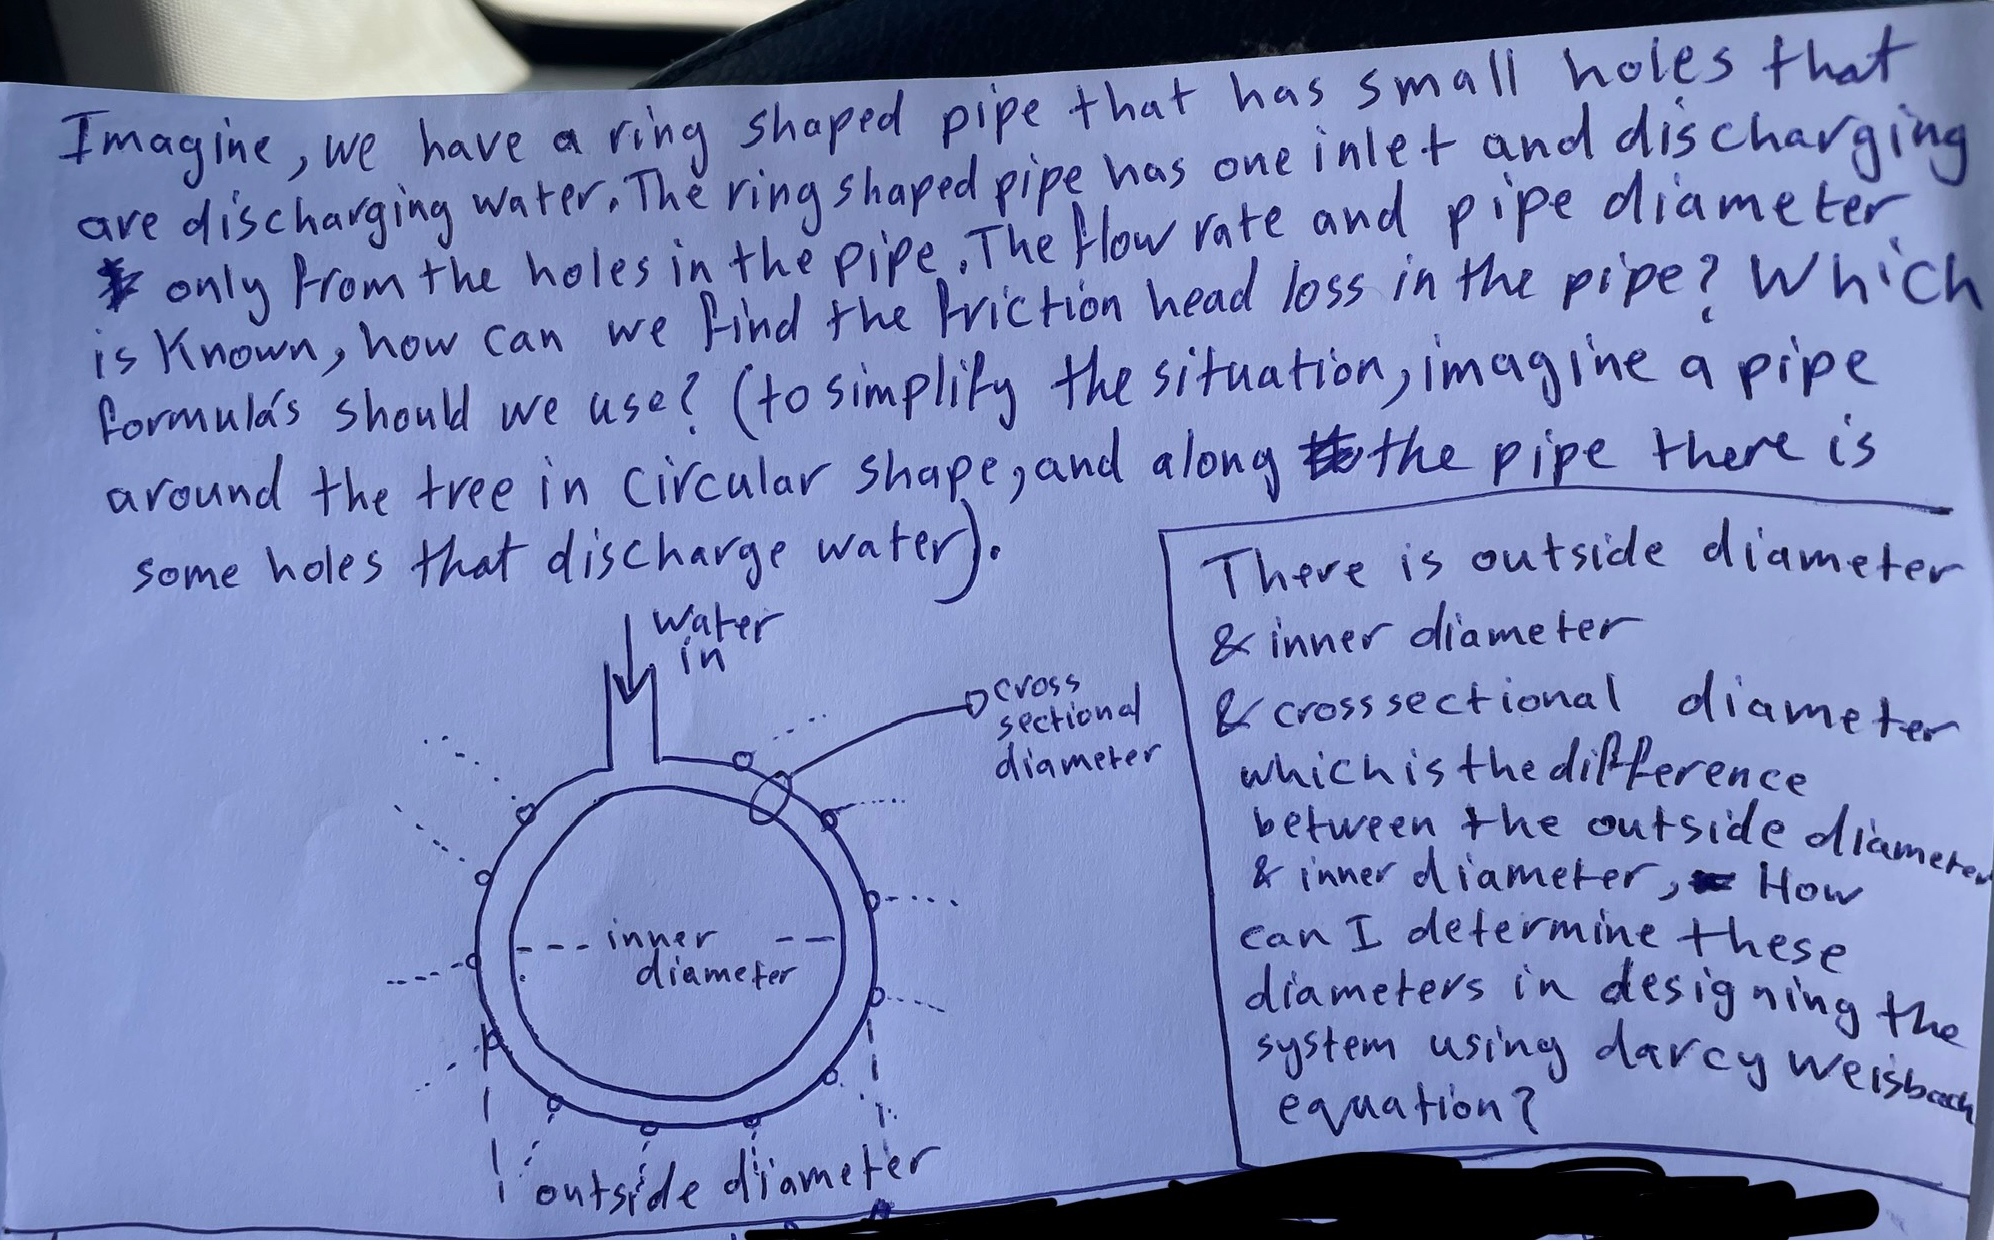 Imagine, we have a ring shaped pipe that has small holes that
are discharging water. The ring shaped pipe has one inlet and discharging
only from the holes in the pipe. The flow rate and pipe diameter
is known, how can we find the friction head loss in the pipe? Which
formula's should we use? (to simplify the situation, imagine a pipe
around the tree in circular shape, and along the pipe there is
some holes that discharge water).
water
in
cross
sectional
diameter
inner
diameter
outside diameter
There is outside diameter
& inner diameter
& crosssectional diameter
which is the difference
between the outside diameter
& inner diameter, How
can I determine these
diameters in designing the
system using darcy weisbach
equation?